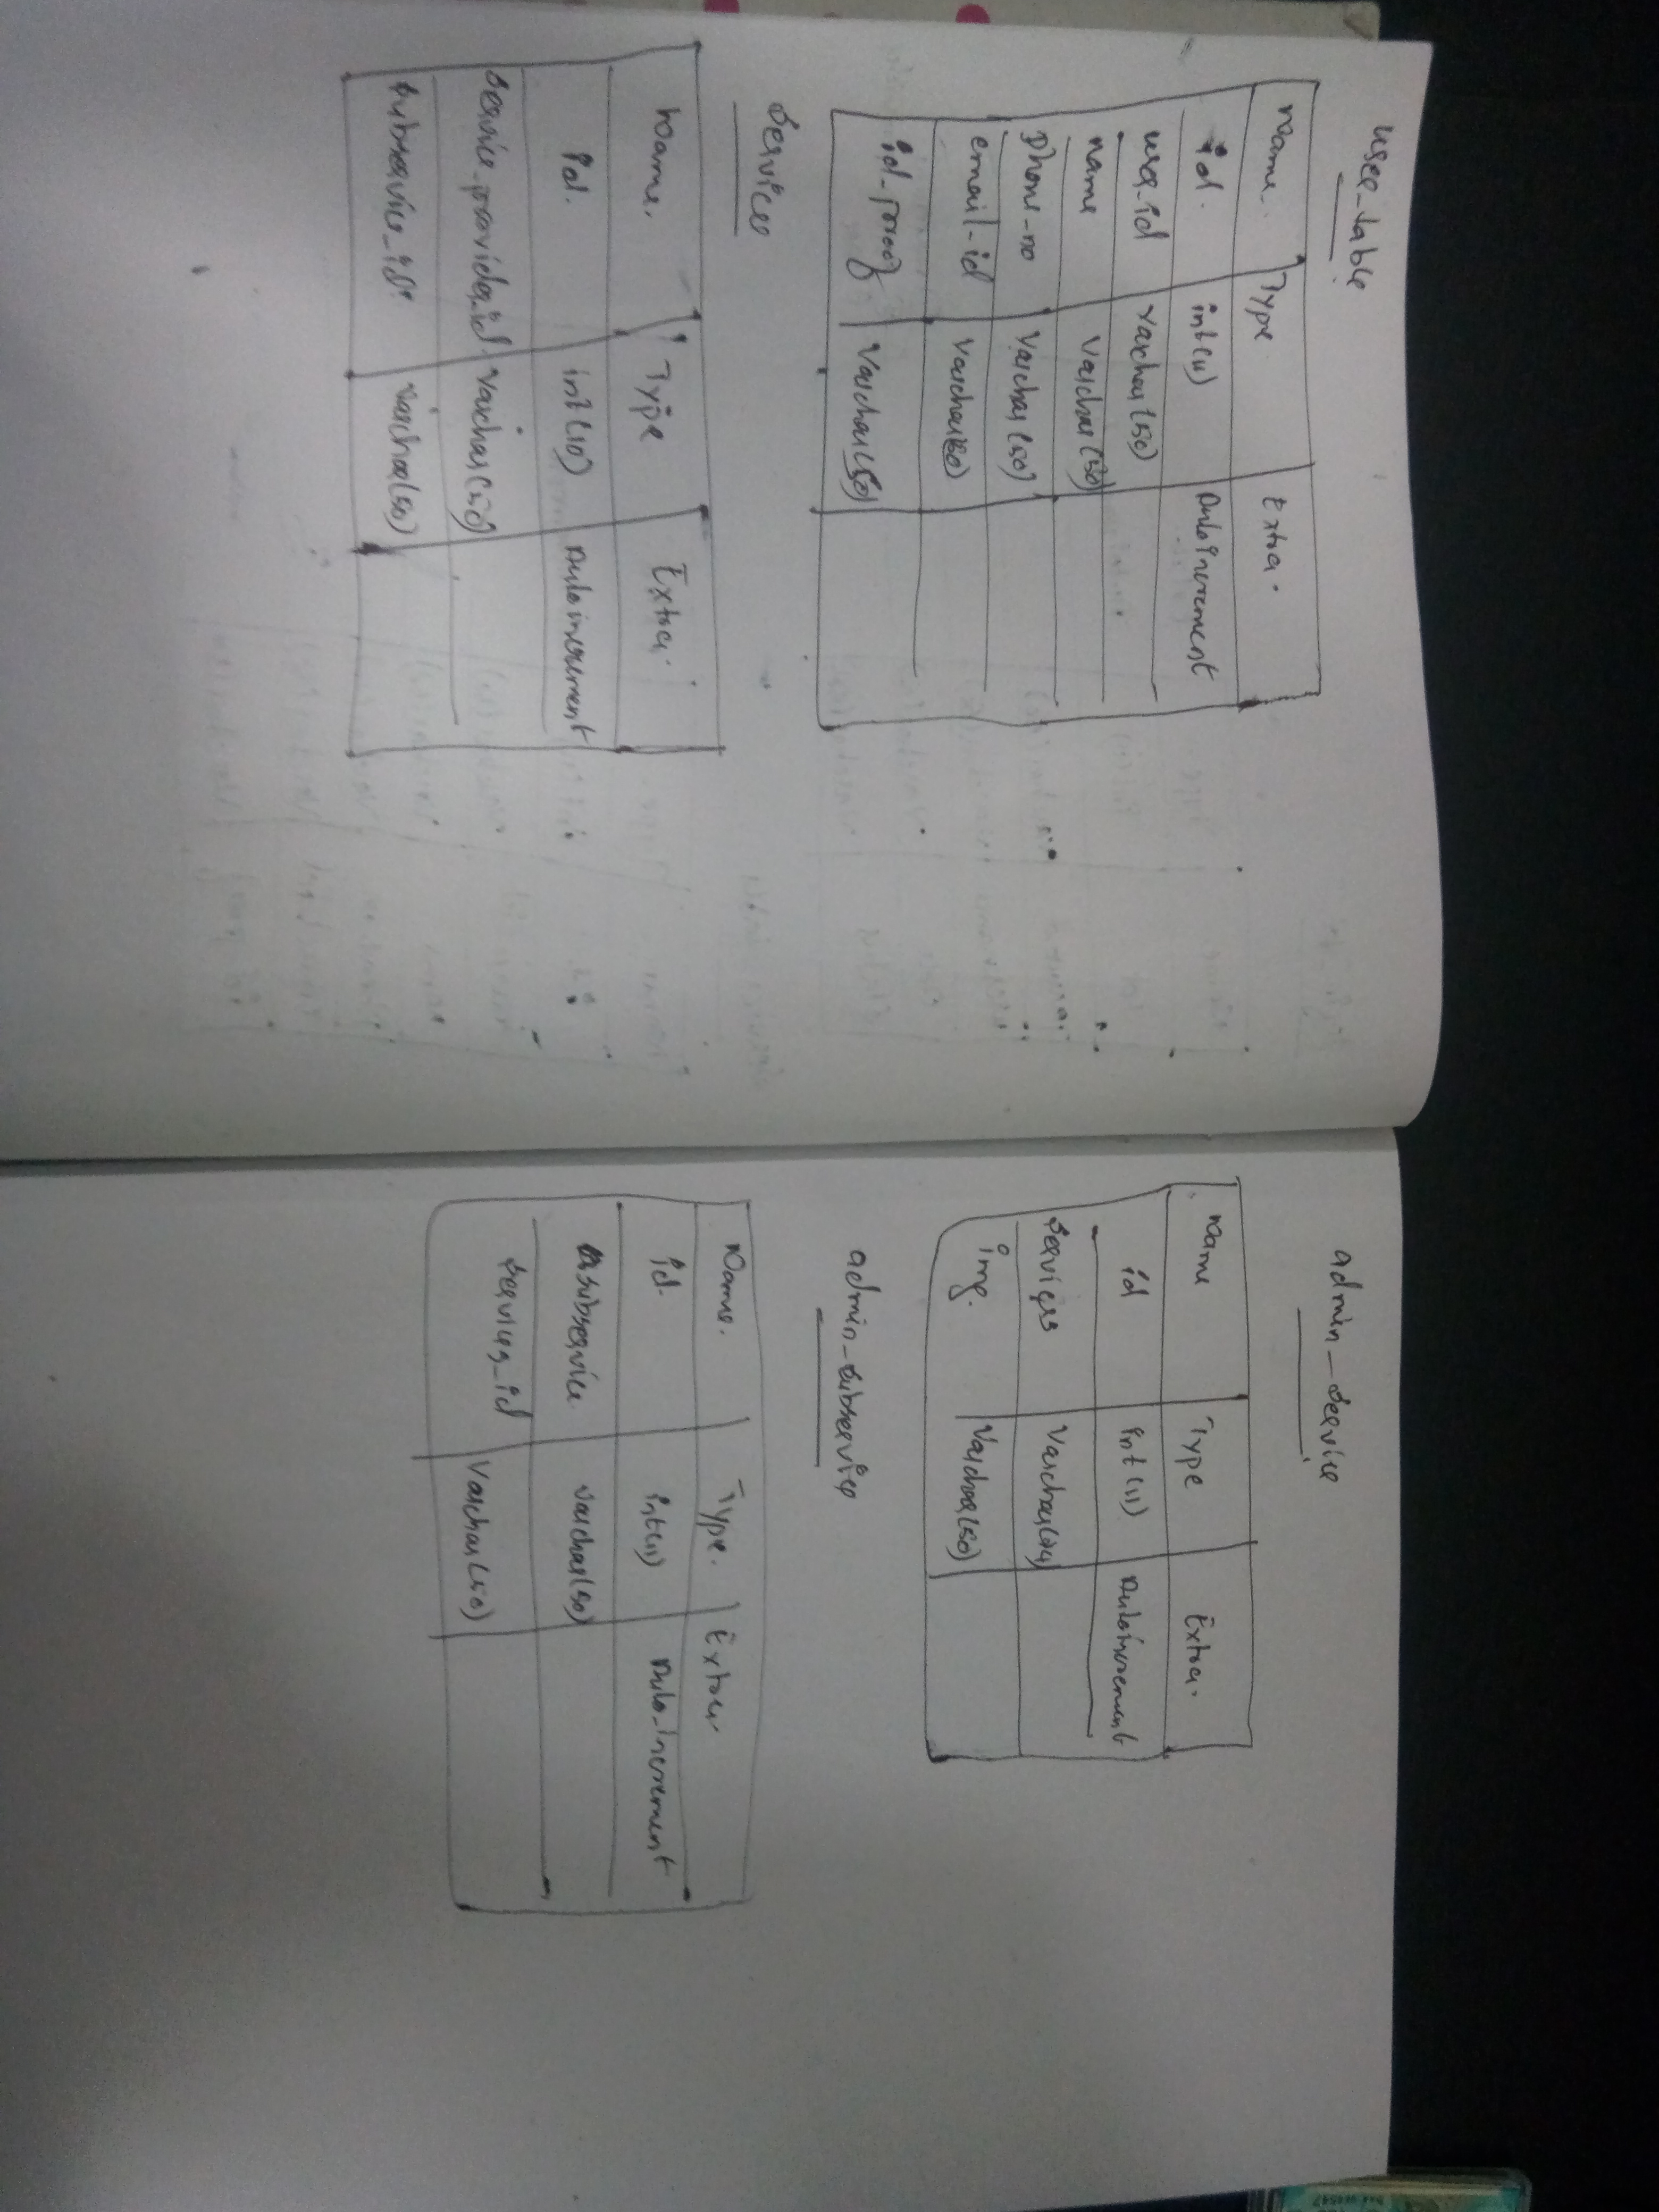 user_table
Name. Type Extra.
id. int(11) Autoincrement
user_id varchar(50)
name varchar(50)
Phone_no varchar(50)
email_id varchar(50)
id_proof varchar(50)
Service
Name. Type Extra.
id. int(10) Autoincrement
service_provider_id varchar(50)
subservice_id varchar(50)
admin_service
Name Type Extra.
id int(11) Autoincrement
Services varchar(24)
img. varchar(50)
admin_subservice
Name. Type. Extra.
id. int(11) Auto_increment
subservice varchar(50)
service_id varchar(50)